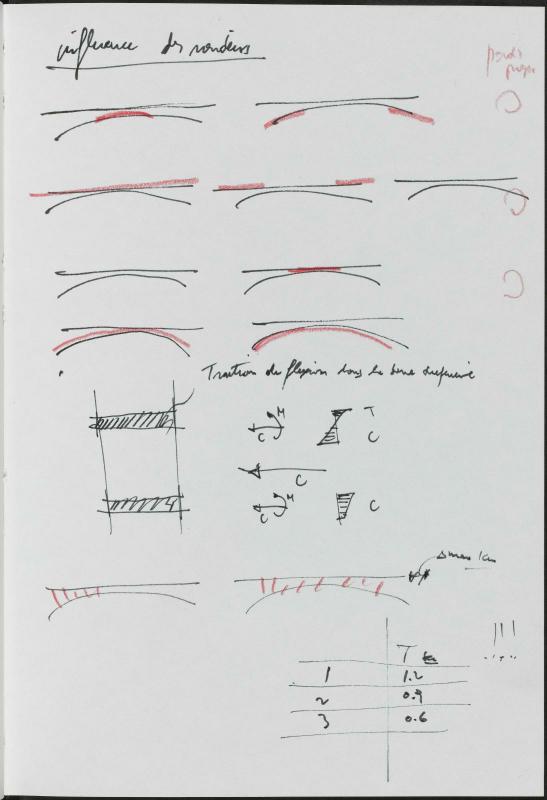 influence des raideurs
poids
propre
Traction de flexion dans la dalle supérieure
M
C
T
C
C
M
C
C
T
1 1.2
2 0.9
3 0.6